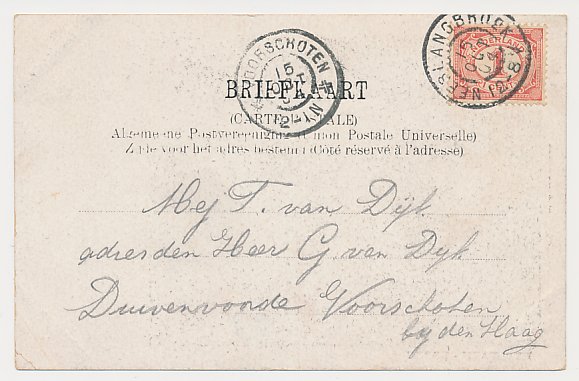 NEERLANGBROEK
VOORSCHOTEN
15
OCT
2-3N
NEDERLAND
1
BRIEFKAART
(CARTE POSTALE)
Algemeene Postvereeniging (Union Postale Universelle)
Zijde voor het adres bestemd (Côté réservé à l'adresse)
Mej T. van Dijk
adres den Heer G. van Dyk
Duivenvoorde Voorschoten
by den Haag